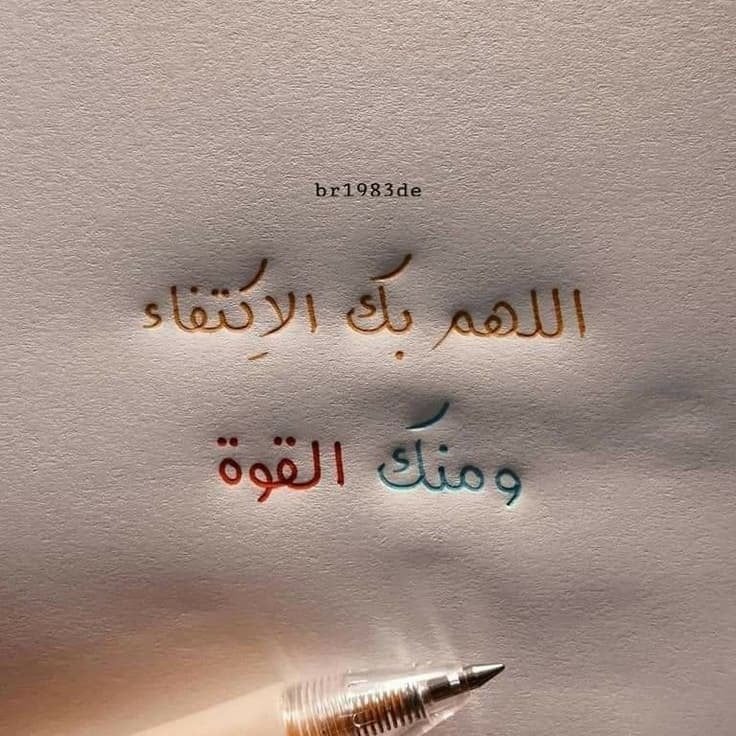 br1983de
اللهم بك الاِكتفاء
ومنك القوة